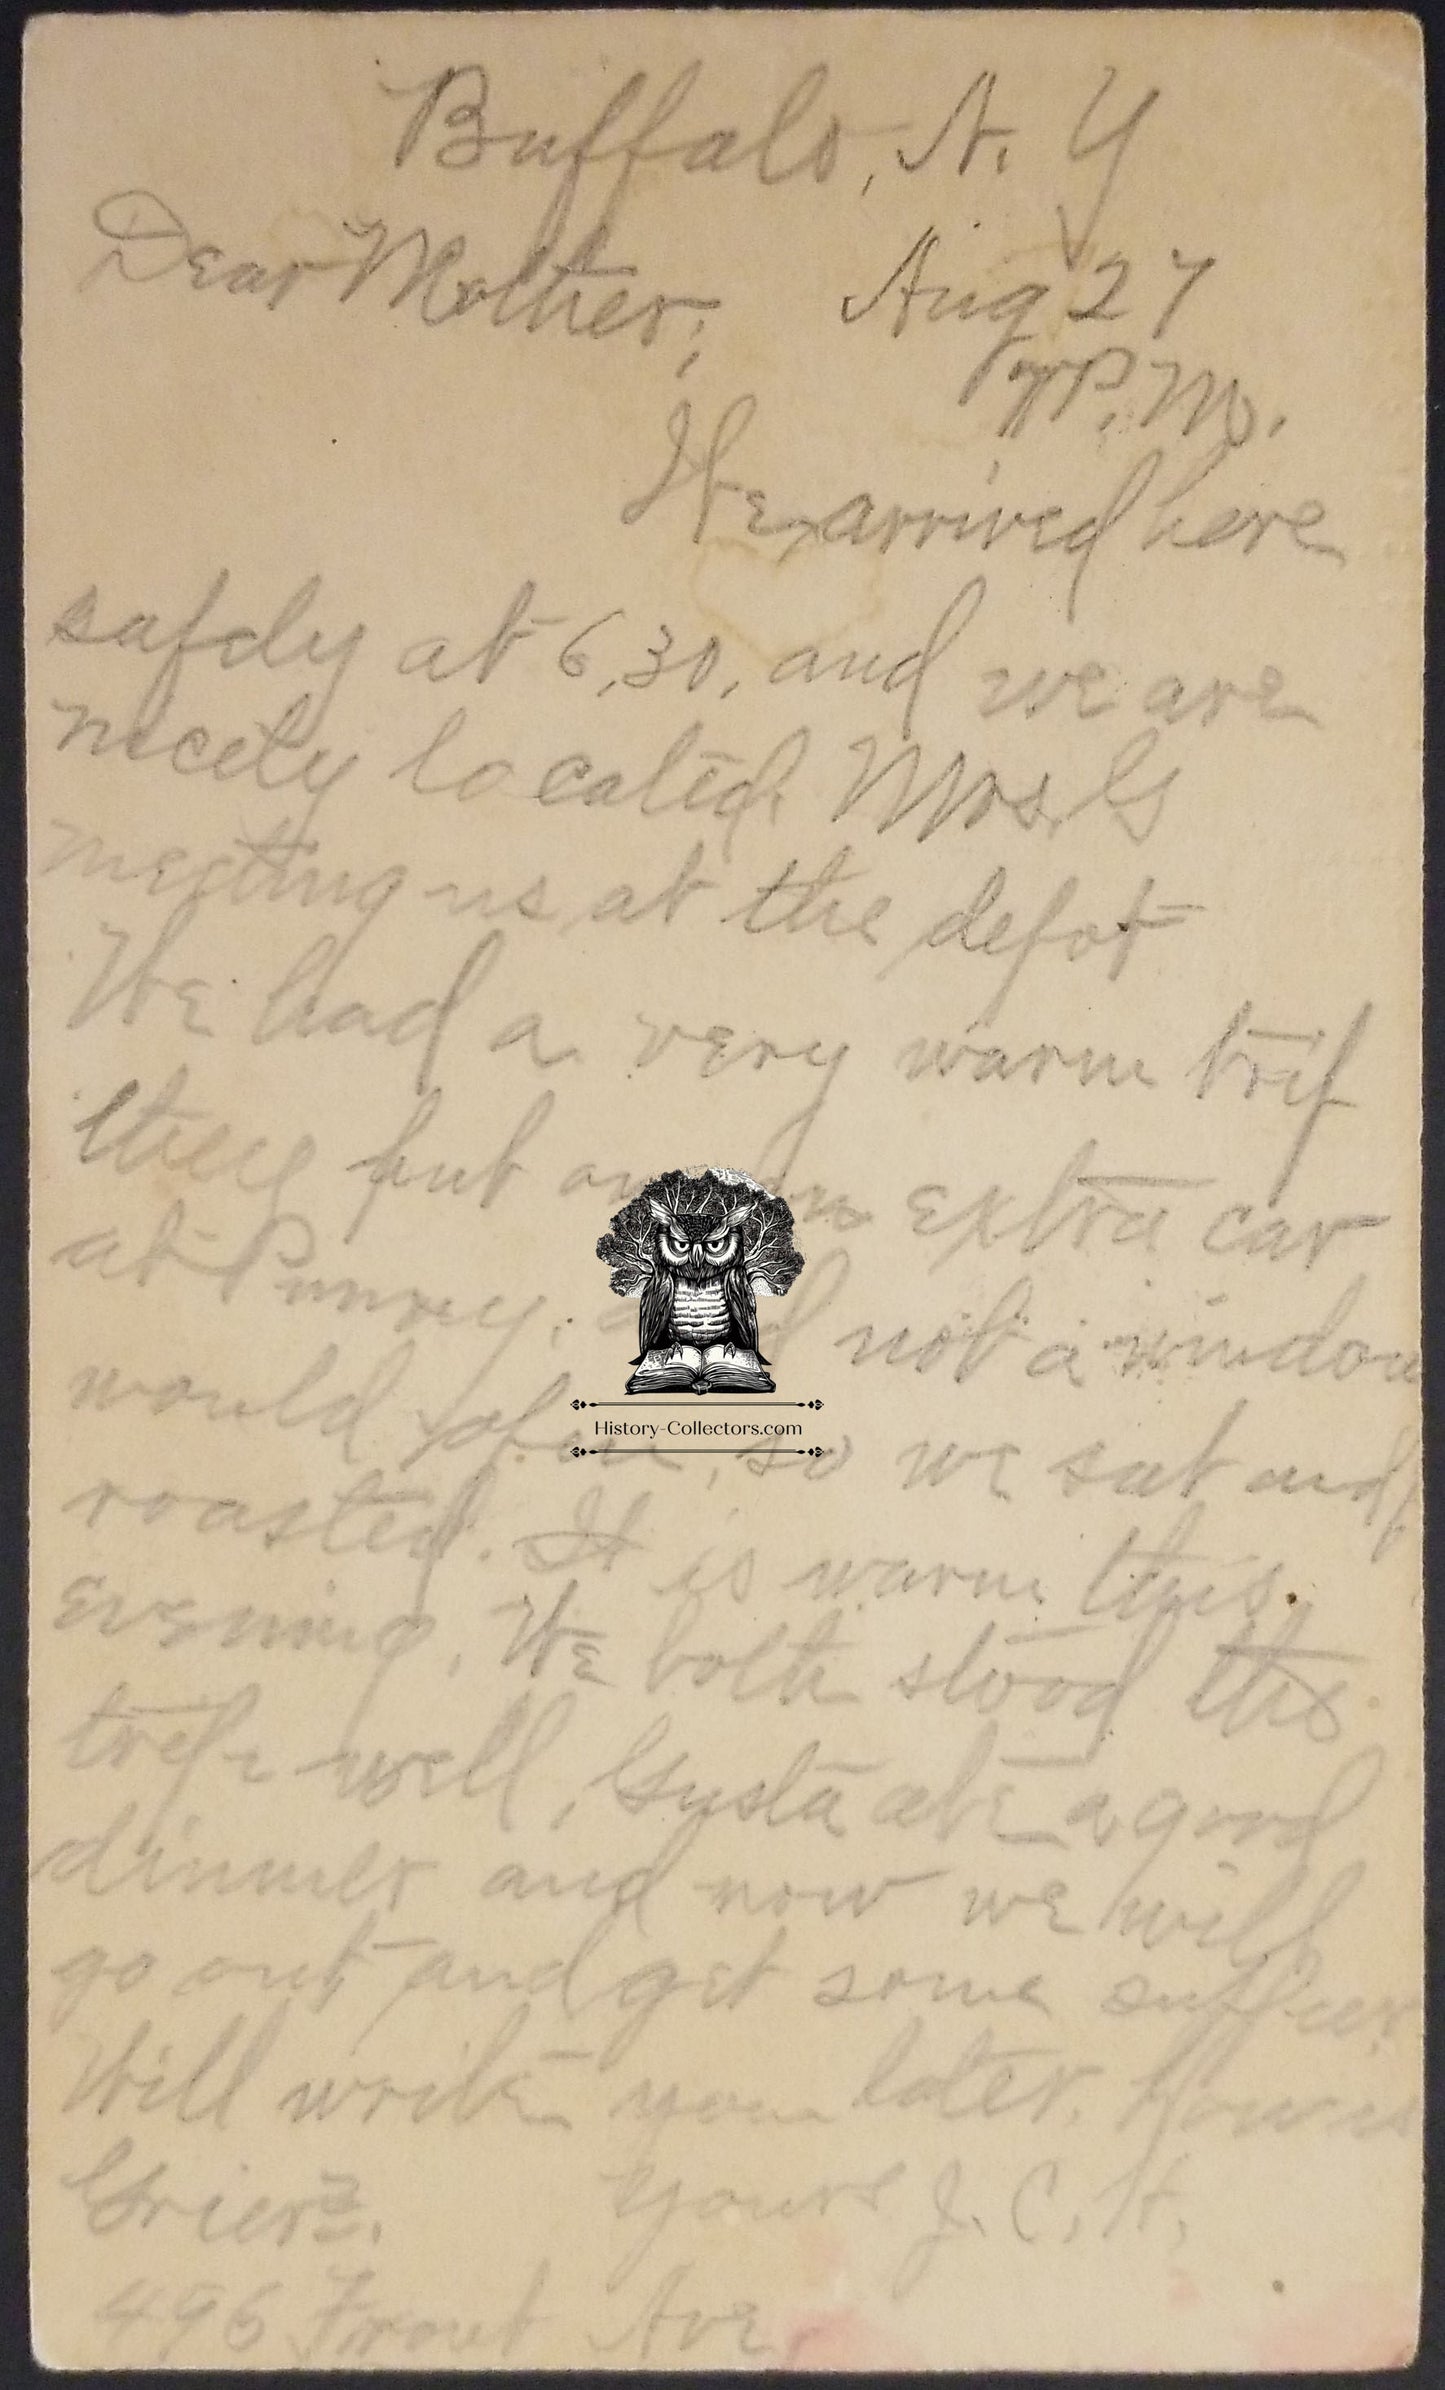 Buffalo, N. Y
Dear Mother; Aug 27
P. M.
We arrived here
safely at 6,30, and we are
nicely located. Mrs. G
meeting us at the depot
We had a very warm trip
they put on an extra car
at and not a window
would open, so we sat and
roasted. It is warm this
evening. We both stood the
trip well, Gusta ate a good
dinner and now we will
go out and get some supper
Will write you later. How is
Grier?. Yours J. C. H.
496 Front Ave.
History-Collectors.com